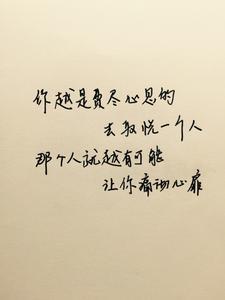 你越是费尽心思的
去取悦一个人
那个人就越有可能
让你痛彻心扉